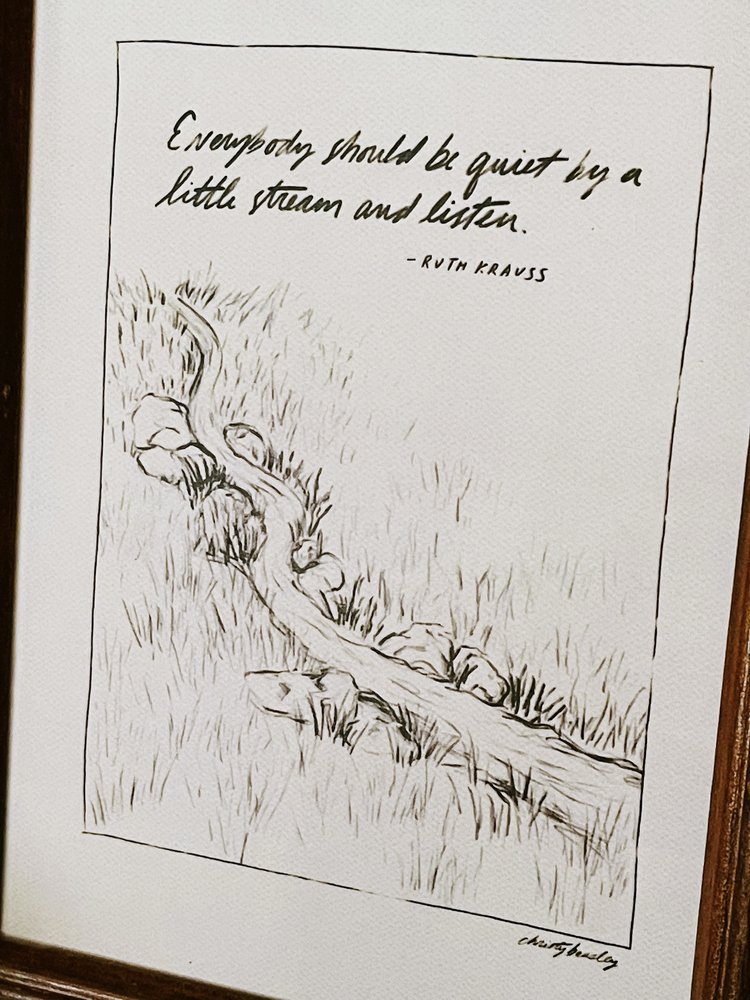 Everybody should be quiet by a
little stream and listen.
- RUTH KRAUSS
christy beasley